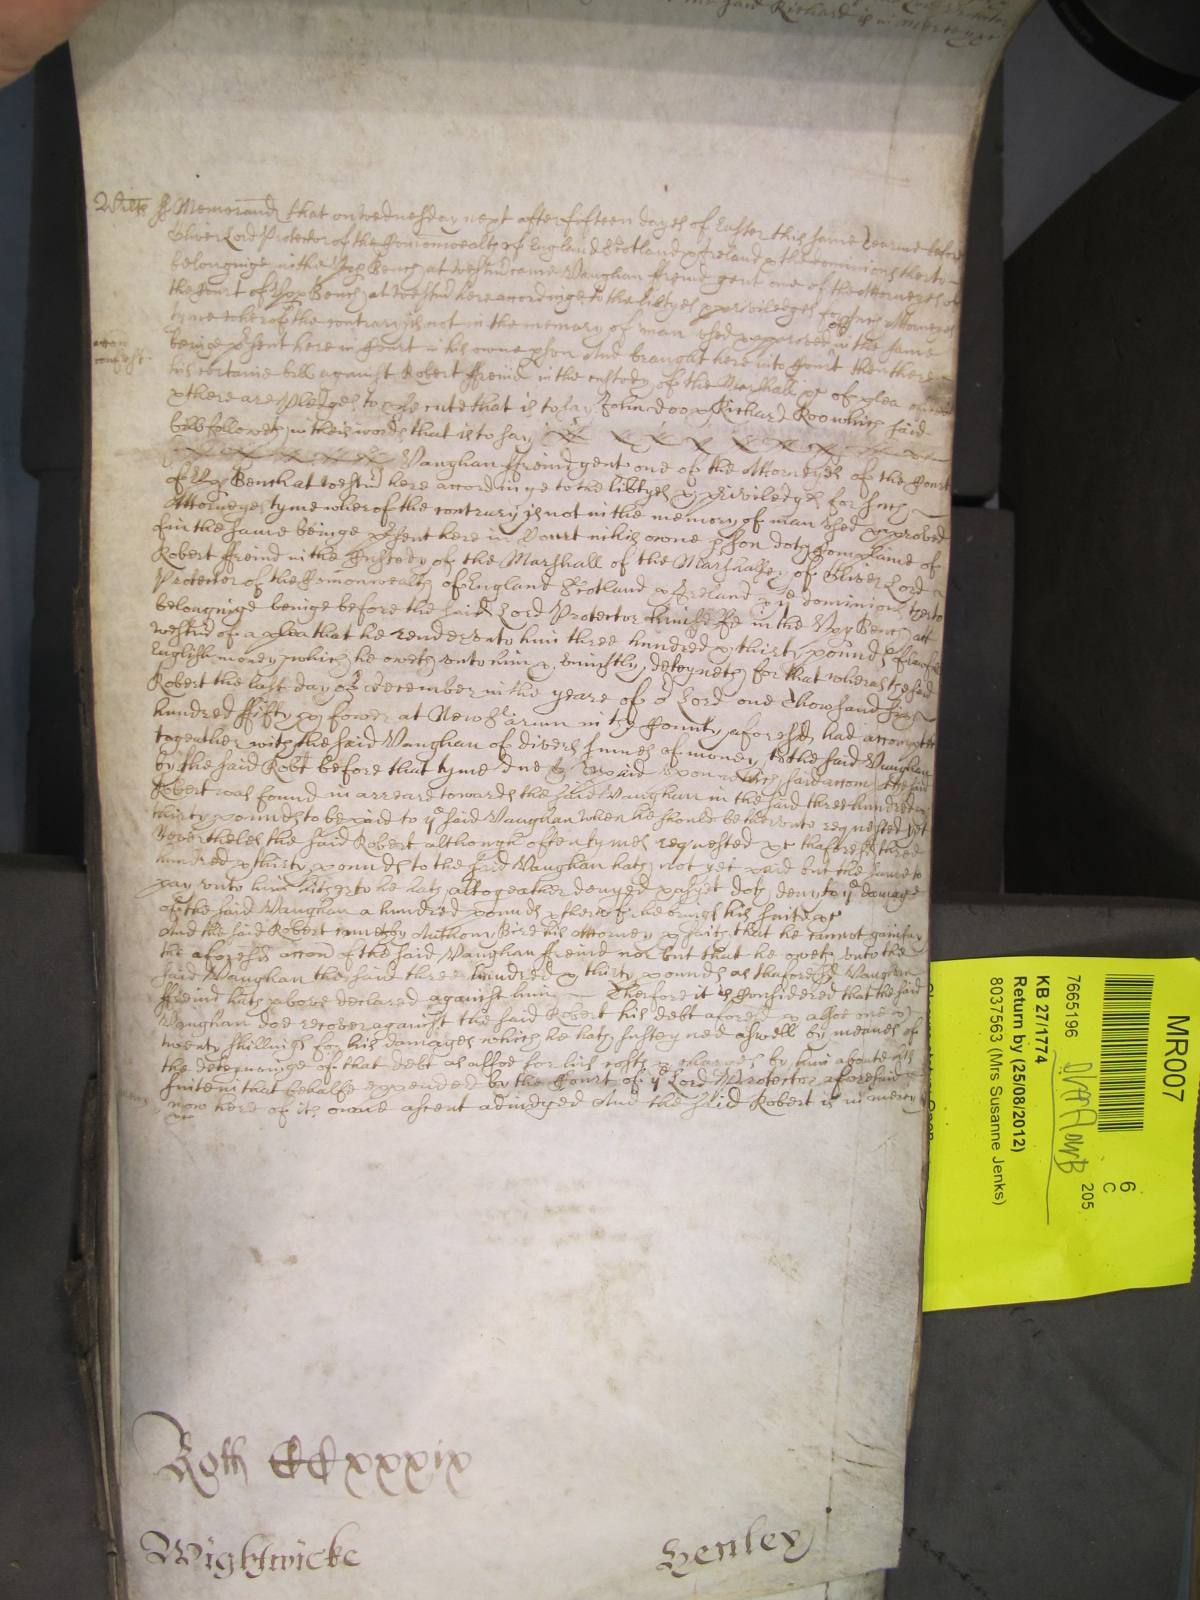 the said Richard is in mercy &c
Wilts ss Memorand that on Wednesday next after fifteen dayes of Easter this same Tearme before
Oliver Lord Protector of the Comonwealth of England Scotland & Ireland & the dominions therto
belonginge in the Upp Bench at Westm came Vaughan Freind gent one of the Attorneyes of
the Court of Upp Bench at Westm here accordinge to the lib'tyes & priviledges for such Attorneyes
tyme wherof the contrary is not in the memory of man used & approved in the same
beinge p'sent here in Court in his owne p'son And brought here into Court then there
accon confest
his certaine bill against Robert Freind in the custody of the Marshall &c of plea of debt
& there are pledges to p'secute that is to say John doo & Richard Roo which said
bill followeth in theis words that is to say
Vaughan Freind gent one of the Attorneyes of the Court
of Upp Bench at Westm here accordinge to the lib'tyes & priviledges for such
Attorneyes tyme wherof the contrary is not in the memory of man used & approved
in the same beinge p'sent here in Court in his owne p'son doth complaine of
Robert Freind in the Custody of the Marshall of the Marshalsey of Oliver Lord
Protector of the Comonwealth of England Scotland & Ireland & ye dominions therto
belonginge beinge before the said Lord Protector himselfe in the Upp Bench att
Westm of a plea that he render unto him three hundred & thirty pounds of lawfull
English money which he oweth unto him & uniustly deteyneth for that wheras the said
Robert the last day of December in the yeare of or Lord one Thowsand six
hundred fifty & fower at New Sarum in the County aforesd had accompted
togeather with the said Vaughan of divers sumes of money to the said Vaughan
by the said Robt before that tyme due & unpaid & upon which said accom the said
Robert was found in arreare towards the said Vaughan in the said three hundred &
thirty pounds to be paid to ye said Vaughan when he should be therunto requested yet
Neverthelesse the said Robert although often tymes requested &c thaforesd three
hundred & thirty pounds to the said Vaughan hath not yet paid but the same to
pay unto him hitherto he hath altogeather denyed & as yet doth deny to ye damage
of the said Vaughan a hundred pounds & therof he brings his suite &c
And the said Robert cometh by Anthony Bird his Attorney & saith that he cannot gainsay
the aforesd accon of the said Vaughan Freind nor but that he oweth unto the
said Vaughan the said three hundred & thirty pounds as thaforesd Vaughan
Freind hath above declared against him Therfore it is Considered that the said
Vaughan doe recover against the said Robert his debt aforesd & alsoe one &
twenty shillings for his damages which he hath susteyned aswell by meanes of
the deteyninge of that debt as alsoe for his costs & charges by him aboute his
suite in that behalfe expended by the Court of ye Lord Protector aforesaid
now here of its owne assent adiudged And the said Robert is in mercy
&c
Roth CCxxxix
Wightwicke Henley
MR007
7665196 205
6
C
KB 27/1774
Return by (25/08/2012)
8037563 (Mrs Susanne Jenks)